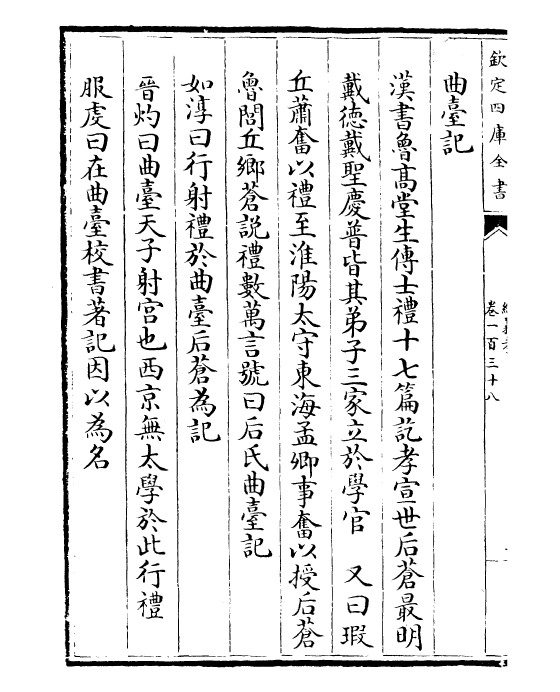 欽定四庫全書
卷一百三十八
曲臺記
漢書魯髙堂生傳士禮十七篇訖孝宣世后蒼最明
戴德戴聖慶普皆其弟子三家立於學官　又曰瑕
丘蕭奮以禮至淮陽太守東海孟卿事奮以授后蒼
魯閭丘鄉蒼説禮數萬言號曰后氏曲臺記
如淳曰行射禮於曲臺后蒼為記
晉灼曰曲臺天子射宫也西京無太學於此行禮
服虔曰在曲臺校書著記因以為名